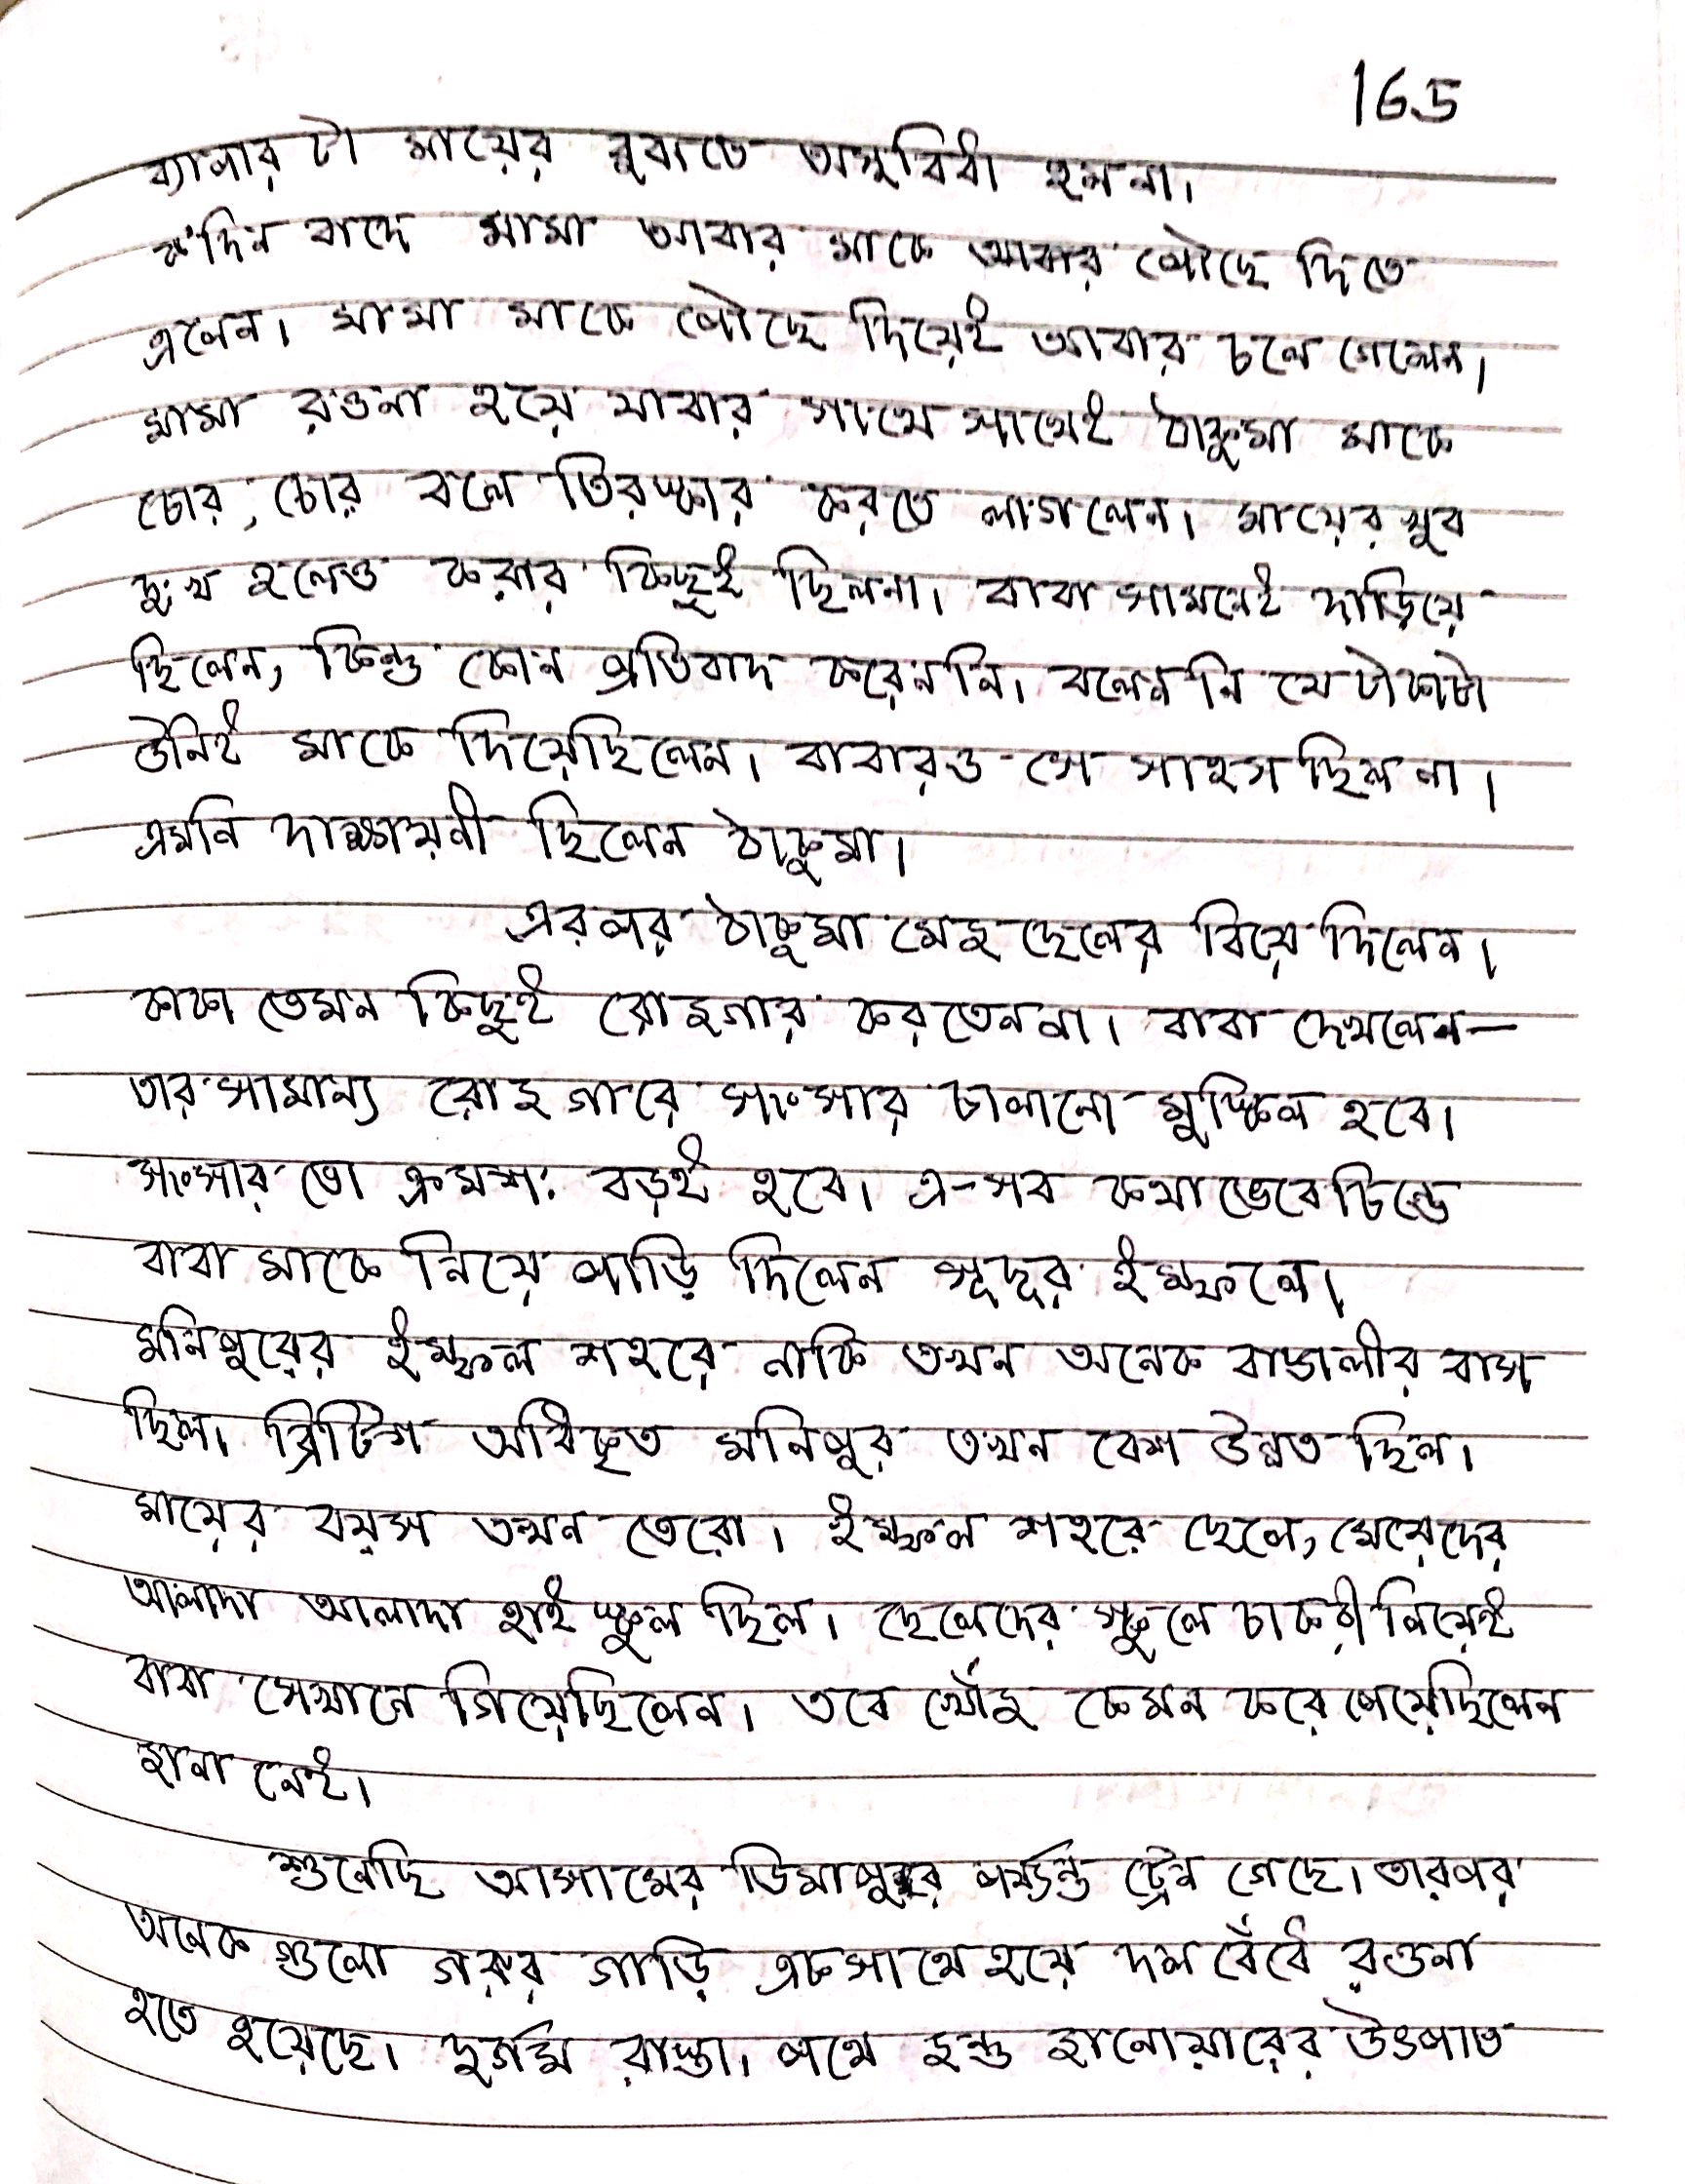 165
ব্যাপারটা মায়ের বুঝতে অসুবিধা হলনা।
ক'দিন বাদে মামা আবার মাকে আবার পৌছে দিতে
এলেন। মামা মাকে পৌছে দিয়েই আবার চলে গেলেন।
মামা রওনা হয়ে যাবার সাথে সাথেই ঠাকুমা মাকে
চোর, চোর বলে তিরস্কার করতে লাগলেন। মায়ের খুব
দুঃখ হলেও করার কিছুই ছিলনা। বাবা সামনেই দাড়িয়ে
ছিলেন, কিন্তু কোন প্রতিবাদ করেননি। বলেননি যে টাকাটা
উনিই মাকে দিয়েছিলেন। বাবারও সে সাহস ছিল না।
এমনি দাক্ষায়নী ছিলেন ঠাকুমা।
এরপর ঠাকুমা মেজ ছেলের বিয়ে দিলেন।
কাকা তেমন কিছুই রোজগার করতেননা। বাবা দেখলেন—
তার সামান্য রোজগারে সংসার চালানো মুস্কিল হবে।
সংসার তো ক্রমশঃ বড়ই হবে। এ-সব কথা ভেবেচিন্তে
বাবা মাকে নিয়ে পাড়ি দিলেন সূদূর ইম্ফলে।
মনিপুরের ইম্ফল শহরে নাকি তখন অনেক বাঙালীর বাস
ছিল। ব্রিটিশ অধিকৃত মনিপুর তখন বেশ উন্নত ছিল।
মায়ের বয়স তখন তেরো। ইম্ফল শহরে ছেলে, মেয়েদের
আলাদা আলাদা হাই স্কুল ছিল। ছেলেদের স্কুলে চাকরী নিয়েই
বাবা সেখানে গিয়েছিলেন। তবে খোঁজ কেমন করে পেয়েছিলেন
জানা নেই।
শুনেছি আসামের ডিমাপুর পর্য্যন্ত ট্রেন গেছে। তারপর
অনেক গুলো গরুর গাড়ি একসাথে হয়ে দল বেঁধে রওনা
হতে হয়েছে। দুর্গম রাস্তা। পথে জন্তু জানোয়ারের উৎপাত